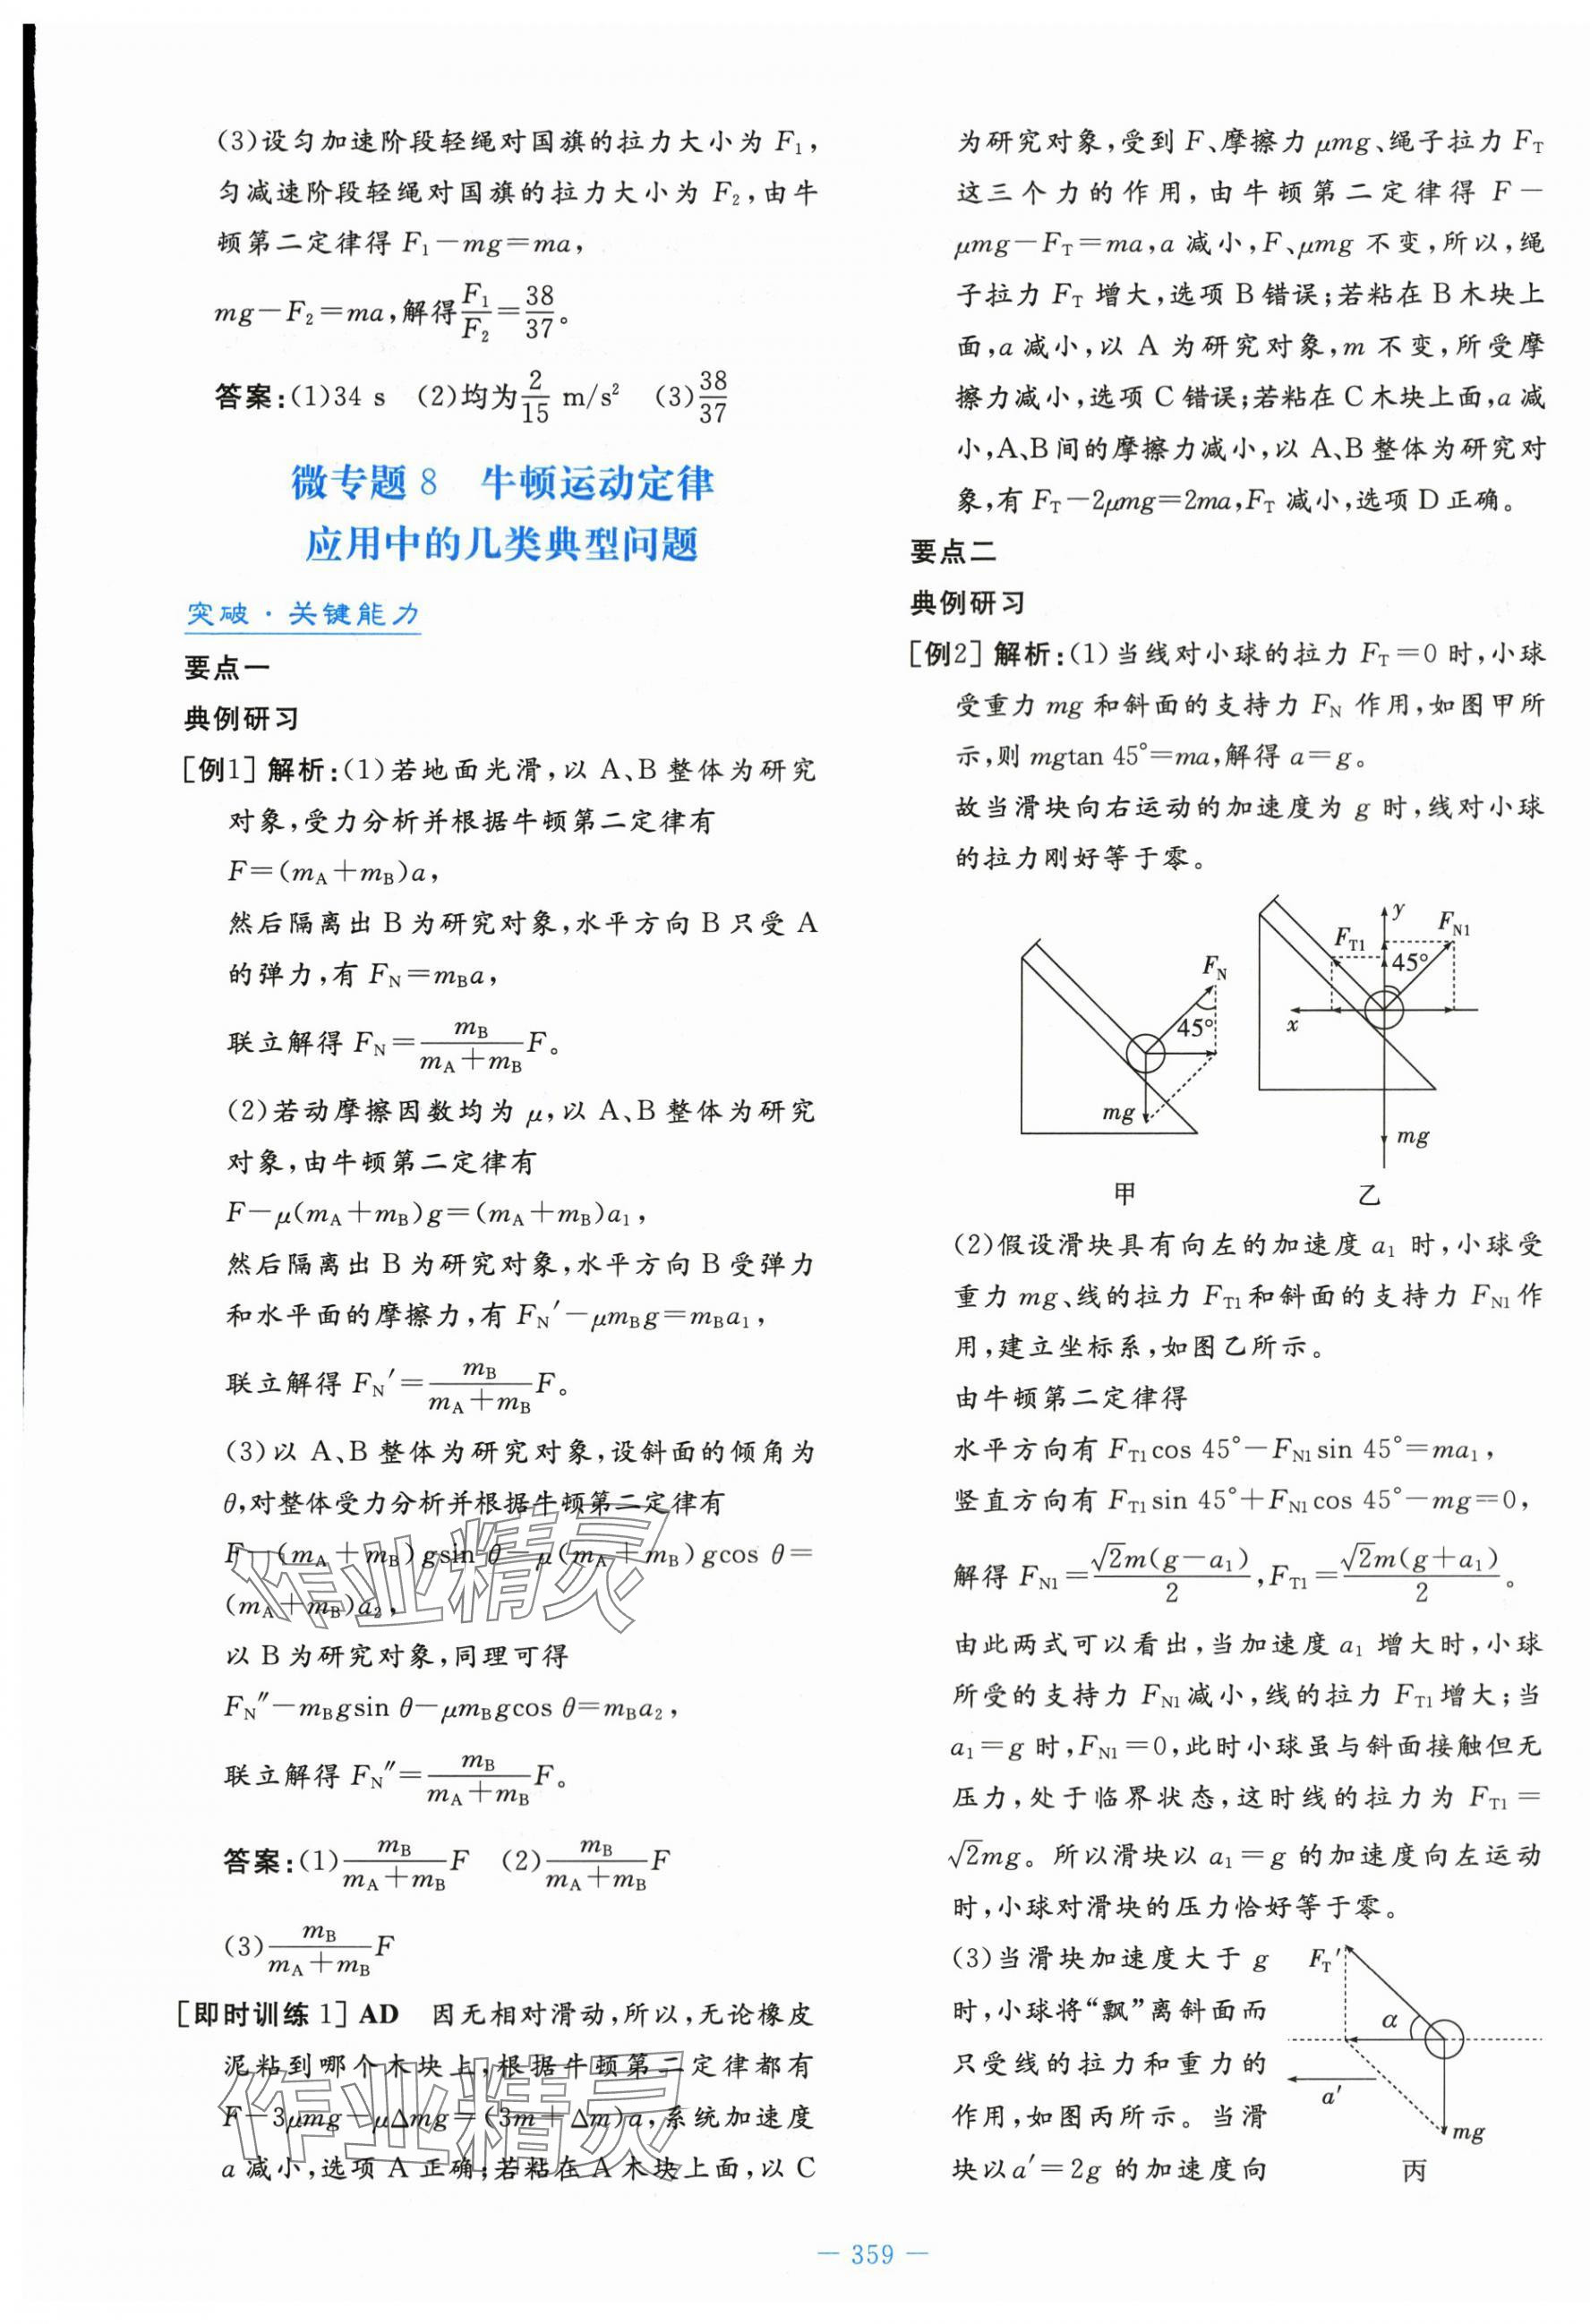 (3)设匀加速阶段轻绳对国旗的拉力大小为 F₁,
匀减速阶段轻绳对国旗的拉力大小为 F₂,由牛
顿第二定律得 F₁－mg＝ma,
mg－F₂＝ma,解得F₁/F₂＝38/37。
答案:(1)34 s (2)均为2/15 m/s² (3)38/37
微专题 8 牛顿运动定律
应用中的几类典型问题
突破·关键能力
要点一
典例研习
[例1] 解析:(1)若地面光滑,以 A、B 整体为研究
对象,受力分析并根据牛顿第二定律有
F＝(m_A＋m_B)a,
然后隔离出 B 为研究对象,水平方向 B 只受 A
的弹力,有 F_N＝m_Ba,
联立解得 F_N＝m_B/(m_A＋m_B)F。
(2)若动摩擦因数均为 μ,以 A、B 整体为研究
对象,由牛顿第二定律有
F－μ(m_A＋m_B)g＝(m_A＋m_B)a₁,
然后隔离出 B 为研究对象,水平方向 B 受弹力
和水平面的摩擦力,有 F_N′－μm_Bg＝m_Ba₁,
联立解得 F_N′＝m_B/(m_A＋m_B)F。
(3)以 A、B 整体为研究对象,设斜面的倾角为
θ,对整体受力分析并根据牛顿第二定律有
F－(m_A＋m_B)gsin θ－μ(m_A＋m_B)gcos θ＝
(m_A＋m_B)a₂,
以 B 为研究对象,同理可得
F_N″－m_Bgsin θ－μm_Bgcos θ＝m_Ba₂,
联立解得 F_N″＝m_B/(m_A＋m_B)F。
答案:(1)m_B/(m_A＋m_B)F (2)m_B/(m_A＋m_B)F
(3)m_B/(m_A＋m_B)F
[即时训练 1] AD 因无相对滑动,所以,无论橡皮
泥粘到哪个木块上,根据牛顿第二定律都有
F－3μmg－μΔmg＝(3m＋Δm)a,系统加速度
a 减小,选项 A 正确;若粘在 A 木块上面,以 C
为研究对象,受到 F、摩擦力 μmg、绳子拉力 F_T
这三个力的作用,由牛顿第二定律得 F－
μmg－F_T＝ma,a 减小,F、μmg 不变,所以,绳
子拉力 F_T 增大,选项 B 错误;若粘在 B 木块上
面,a 减小,以 A 为研究对象,m 不变,所受摩
擦力减小,选项 C 错误;若粘在 C 木块上面,a 减
小,A、B 间的摩擦力减小,以 A、B 整体为研究对
象,有 F_T－2μmg＝2ma,F_T 减小,选项 D 正确。
要点二
典例研习
[例2] 解析:(1)当线对小球的拉力 F_T＝0 时,小球
受重力 mg 和斜面的支持力 F_N 作用,如图甲所
示,则 mgtan 45°＝ma,解得 a＝g。
故当滑块向右运动的加速度为 g 时,线对小球
的拉力刚好等于零。
F_N
45°
mg
甲
y
F_T1
F_N1
45°
x
mg
乙
(2)假设滑块具有向左的加速度 a₁ 时,小球受
重力 mg、线的拉力 F_T1和斜面的支持力 F_N1作
用,建立坐标系,如图乙所示。
由牛顿第二定律得
水平方向有 F_T1cos 45°－F_N1sin 45°＝ma₁,
竖直方向有 F_T1sin 45°＋F_N1cos 45°－mg＝0,
解得 F_N1＝√2m(g－a₁)/2,F_T1＝√2m(g＋a₁)/2。
由此两式可以看出,当加速度 a₁ 增大时,小球
所受的支持力 F_N1减小,线的拉力 F_T1增大;当
a₁＝g 时,F_N1＝0,此时小球虽与斜面接触但无
压力,处于临界状态,这时线的拉力为 F_T1＝
√2mg。所以滑块以 a₁＝g 的加速度向左运动
时,小球对滑块的压力恰好等于零。
(3)当滑块加速度大于 g
时,小球将“飘”离斜面而
只受线的拉力和重力的
作用,如图丙所示。当滑
块以a′＝2g 的加速度向
F_T′
α
a′
mg
丙
作业精灵
作业精灵
— 359 —